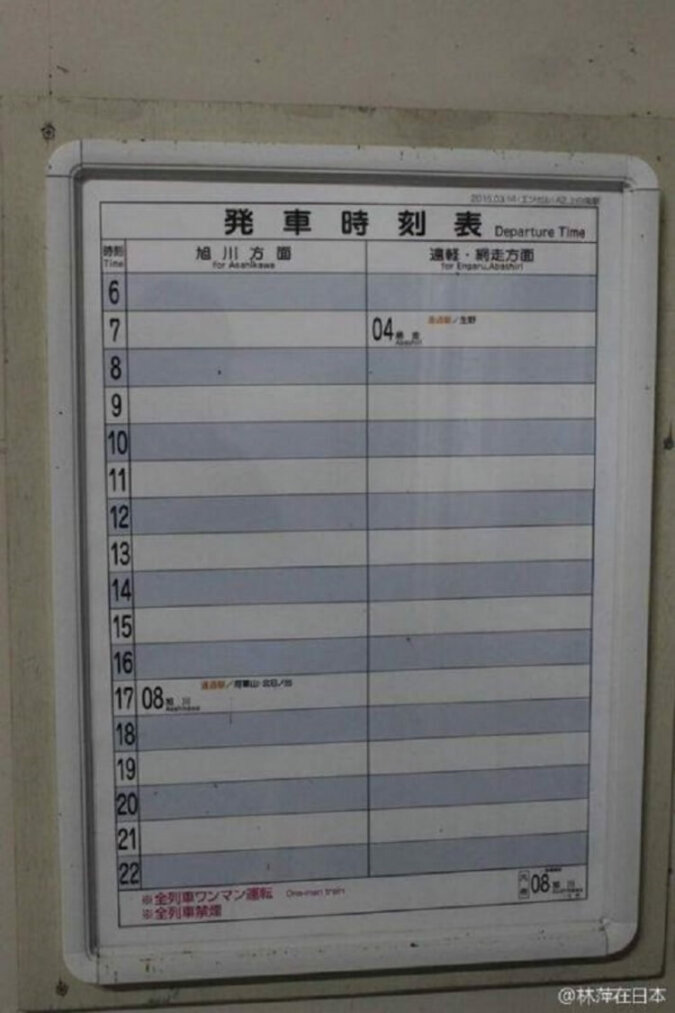 発車時刻表 Departure Time
時刻 旭川方面 遠軽・網走方面
Time for Asahikawa for Engaru,Abashiri
6
通過駅/生野
7 04 網走
Abashiri
8
9
10
11
12
13
14
15
16
通過駅
17 08 旭川
Asahikawa
18
19
20
21
22
※全列車ワンマン運転 One-man train
08 旭川
※全列車禁煙
@林萍在日本